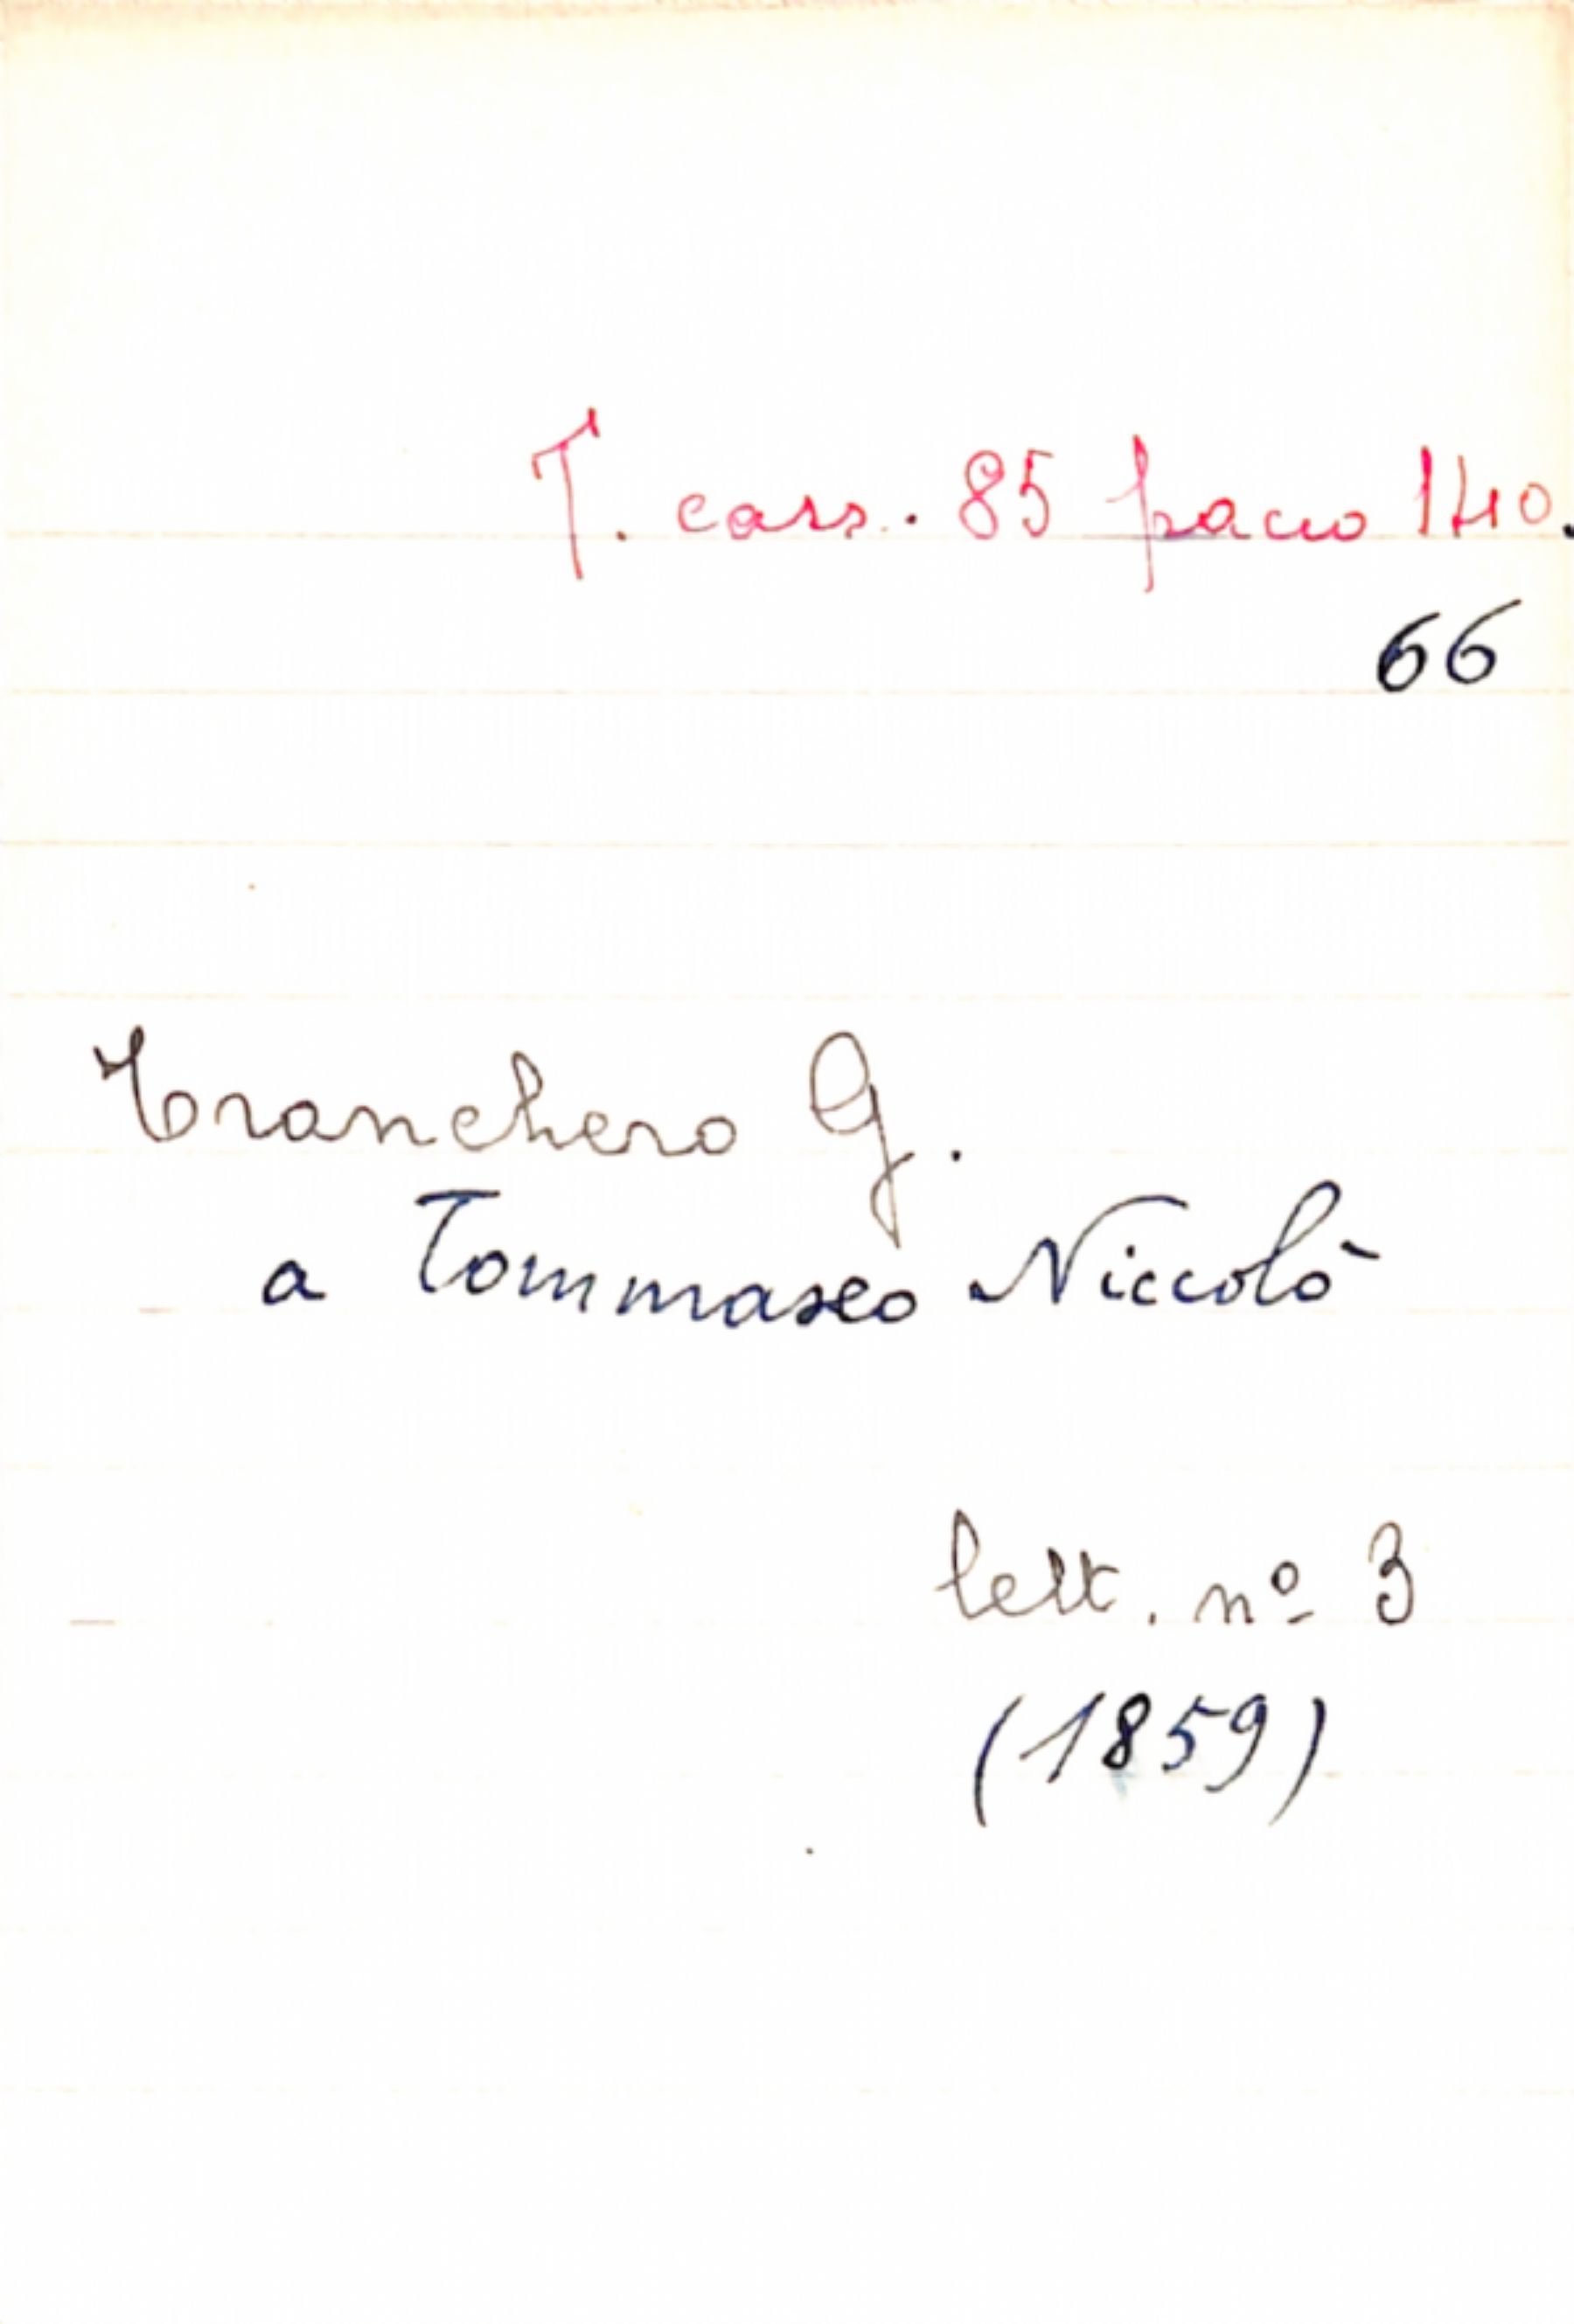 T. cass. 85 pacco 140.
66
Tranchero G.
a Tommaseo Niccolò
lett. nº 3
(1859)